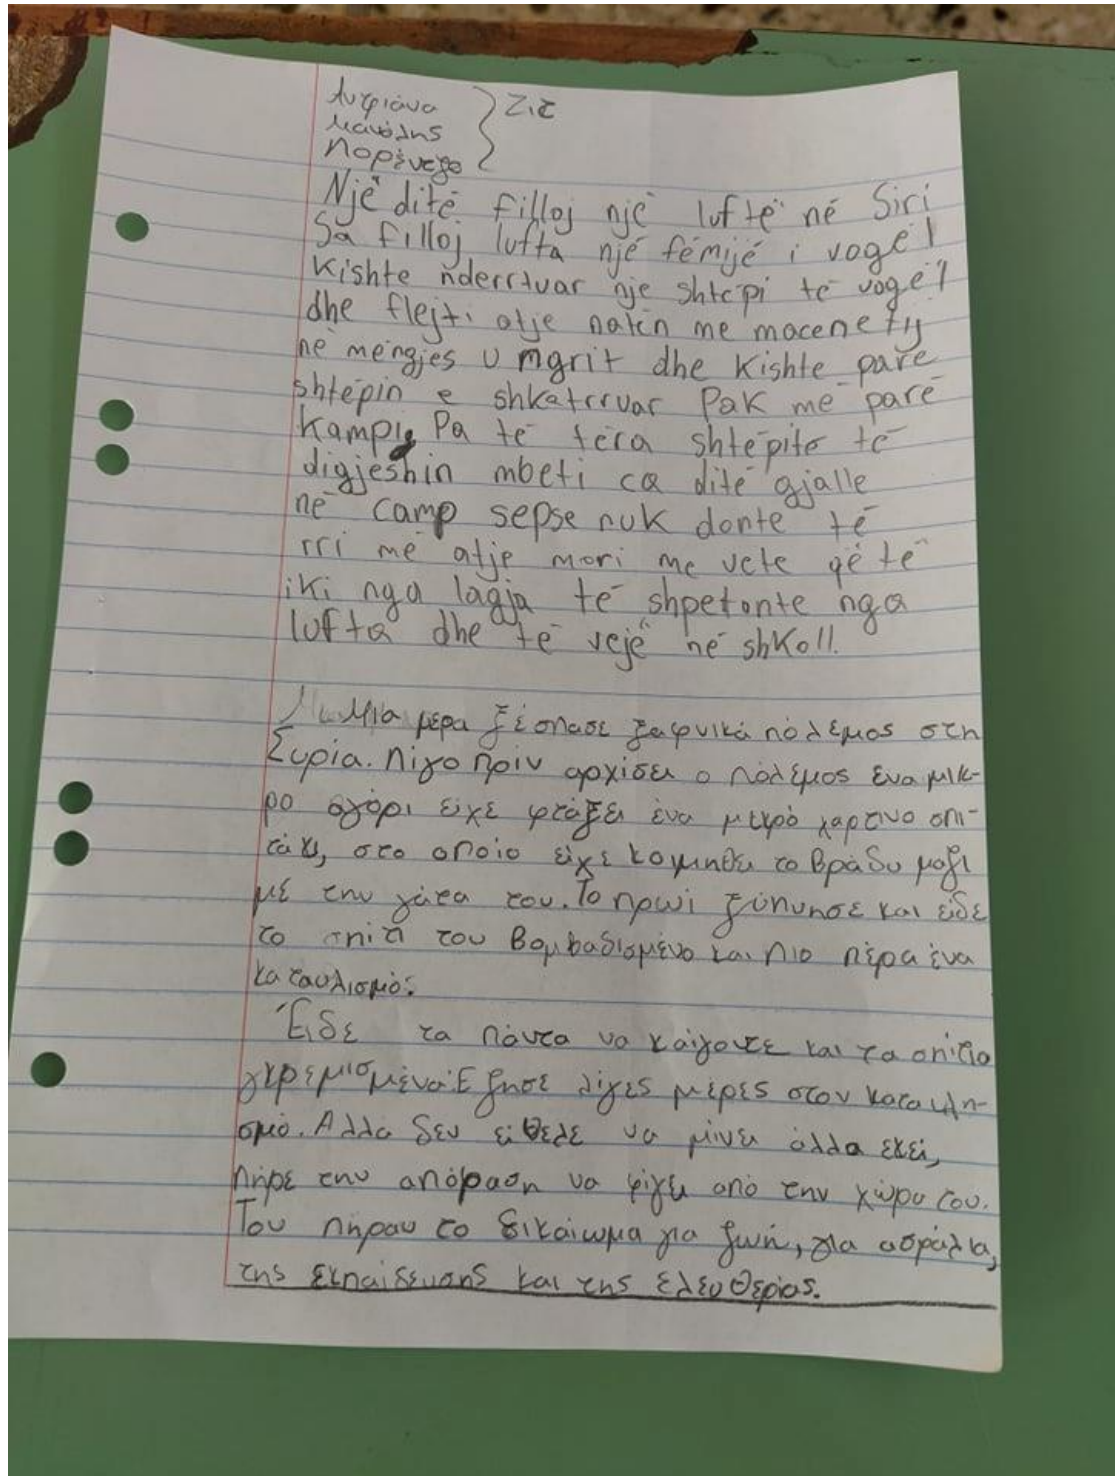 Αντριάνα
Μανώλης
Λορένζο
} Στ
Një ditë filloj një luftë në Siri
Sa filloj lufta një fëmijë i vogël
Kishte nderrtuar nje shtëpi të vogël
dhe flejti atje natën me macenetij
në mëngjes u mgrit dhe Kishte parë
shtëpin e shkatrruar Pak më parë
Kampi, Pa të tëra shtëpite të
digjeshin mbeti ca ditë gjalle
në camp sepse nuk donte të
rri më atje mori me vete që të
iki nga lagja të shpetonte nga
lufta dhe të vejë në shkoll.
Μια μέρα ξέσπασε ξαφνικά πόλεμος στη
Συρία. Λίγο πριν αρχίσει ο πόλεμος ένα μικ-
ρο αγόρι είχε φτιάξει ένα μικρό χαρτινο σπι-
τάκι, στο οποίο είχε κοιμηθει το βράδυ μαζι
με την γάτα του. Το πρωί ξύπνησε και είδε
το σπίτι του βομβαδισμένο και πιο πέρα ένα
καταυλισμό.
Είδε τα πάντα να καίγοντε και τα σπίτια
γκρεμισμένα. Εζησε λίγες μέρες στον
σμό. Αλλά δεν ήθελε να μίνει άλλο εκεί,
πήρε την απόφαση να φίγει από την χώρα του.
Του πήραν το δικαίωμα για ζωή, για ασφάλια,
της εκπαίδευσης και της ελευθερίας.